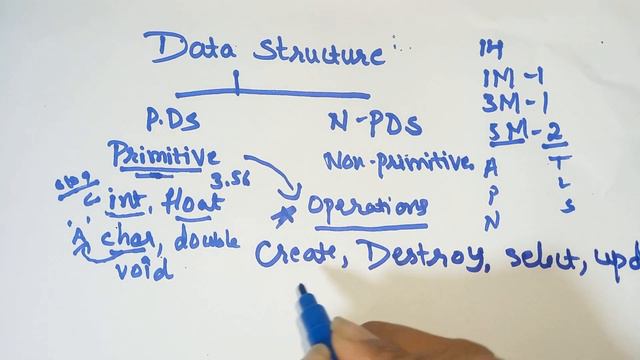 Data Structure
P.DS
N-PDS
Primitive
Non-primitive
3.56
int, float
Operations
'A' char, double
void
Create, Destroy, select, upd
1M-1
3M-1
5M-2
A T
P L
N S